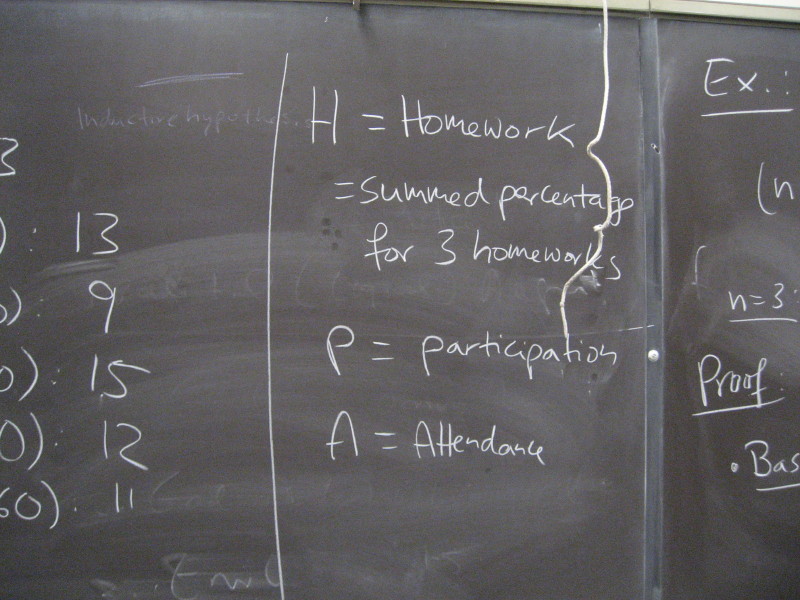 3
): 13
): 9
0): 15
0): 12
60): 11
Inductive hypothesis
H = Homework
= Summed percentage
for 3 homeworks
P = participation
A = Attendance
Ex.:
(n
n=3:
Proof:
• Bas